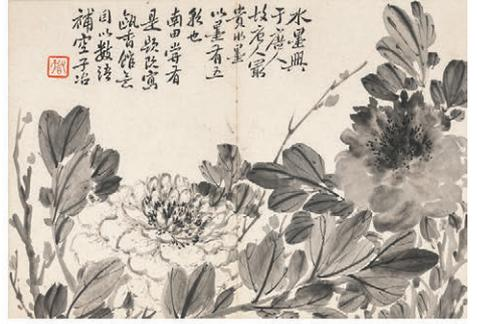 水墨興
于唐人
故唐人最
貴水墨
以墨有五
彩也
南田嘗有
是題
甌香館
因以數語
補空子冶